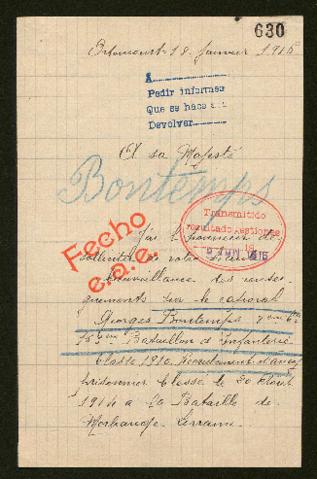 630
18 Janvier 1916
A
Pedir informes
Que se haga
Devolver
A sa Majesté
Bontemps
Fecho
e.a.e.
Transmitido
resultado gestiones
J'ai l'honneur de
solliciter de votre
Bienveillance des rensei-
gnements sur le caporal
Georges Bontemps
Bataillon d'Infanterie
Classe 1910, Recrutement d'
prisonnier blessé le 20 Août
1914 à la Bataille de
Morhange Lorraine